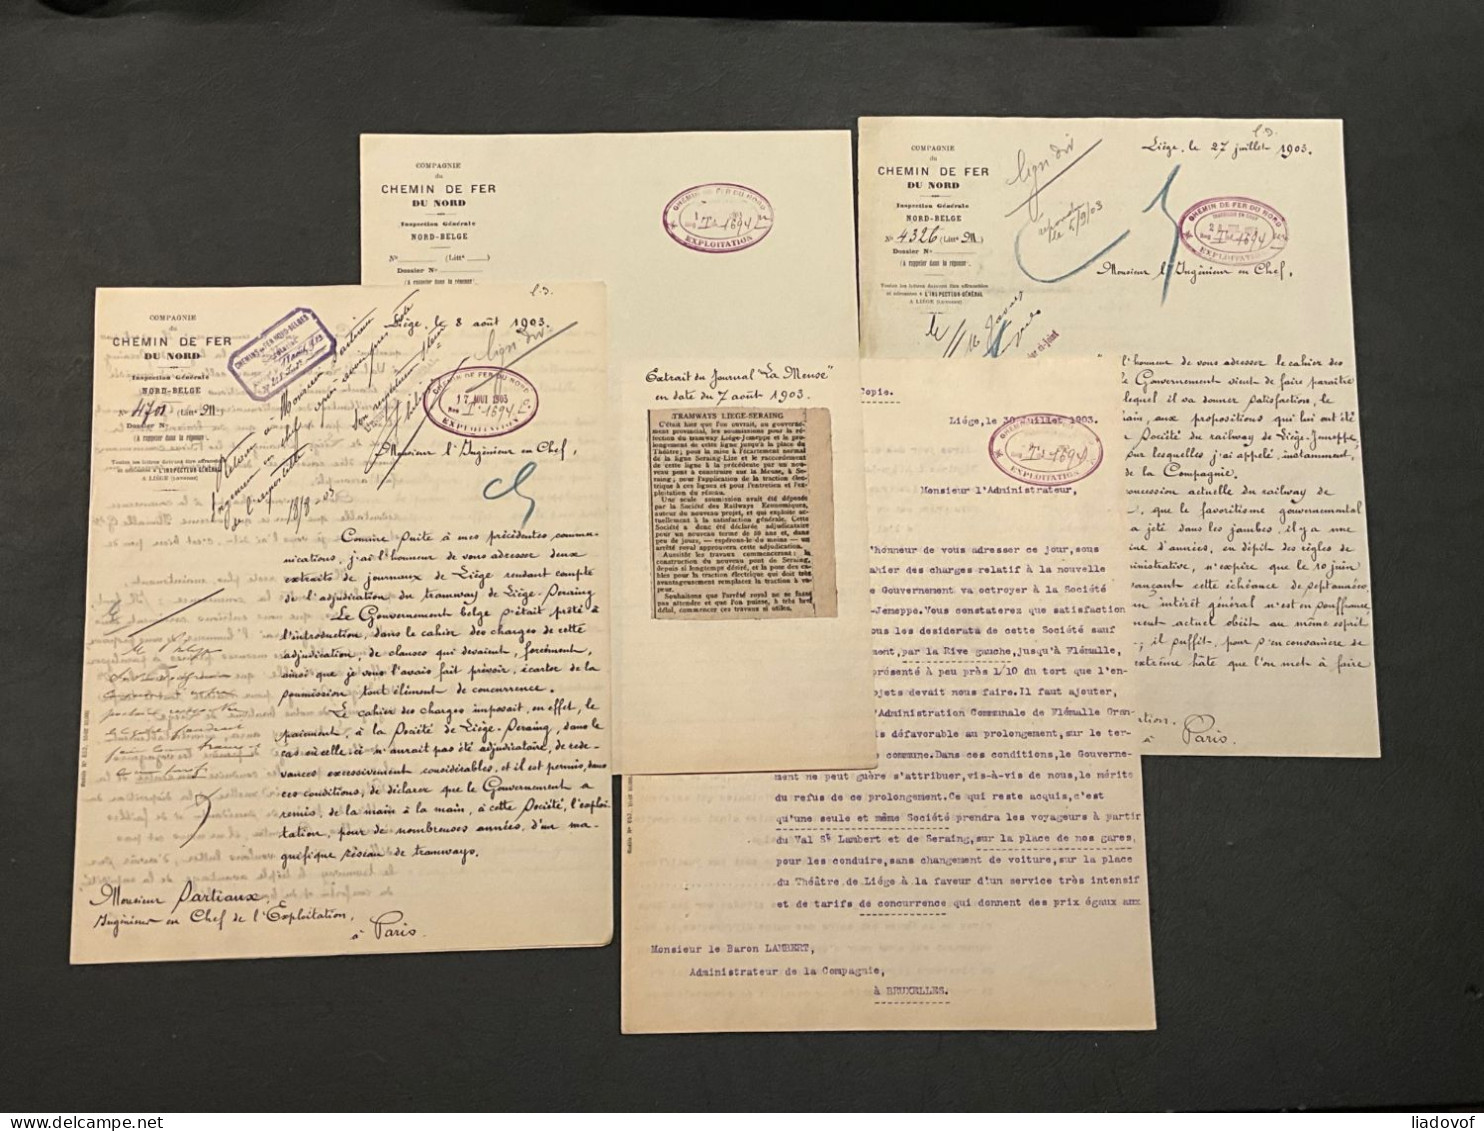 COMPAGNIE
du
CHEMIN DE FER
DU NORD
Inspection Générale
NORD-BELGE
N° 4701 (Littª M)
Dossier N°
(À rappeler dans la réponse)
Toutes les lettres doivent être affranchies
et adressées à L'INSPECTION GÉNÉRALE
À LIÉGE (Longdoz)
Liége, le 8 août 1903.
17 AOUT 1903
I 1694 E
EXPLOITATION
Monsieur l'Ingénieur en Chef,
18/8 03
Comme suite à mes précédentes commu-
nications, j'ai l'honneur de vous adresser deux
extraits de journaux de Liége rendant compte
de l'adjudication du tramway de Liége-Seraing
Le Gouvernement belge s'était prêté à
l'introduction, dans le cahier des charges de cette
adjudication, de clauses qui devaient, forcément,
ainsi que je vous l'avais fait prévoir, écarter de la
soumission tout élément de concurrence.
Le cahier des charges imposait, en effet, le
paiement, à la Société de Liége-Seraing, dans le
cas où celle-ci n'aurait pas été adjudicataire, de rede-
vances excessivement considérables, et il est permis, dans
ces conditions, de déclarer que le Gouvernement a
remis, de la main à la main, à cette Société, l'exploi-
tation, pour de nombreuses années, d'un ma-
gnifique réseau de tramways.
Monsieur Sartiaux,
Ingénieur en Chef de l'Exploitation,
à Paris.
COMPAGNIE
du
CHEMIN DE FER
DU NORD
Inspection Générale
NORD-BELGE
N° (Littª )
Dossier N°
(À rappeler dans la réponse)
CHEMIN DE FER DU NORD
1694 E
EXPLOITATION
Extrait du Journal "La Meuse"
en date du 7 août 1903.
TRAMWAYS LIEGE-SERAING
C'était hier que l'on ouvrait, au gouverne-
ment provincial, les soumissions pour la ré-
fection du tramway Liége-Jemeppe et le pro-
longement de cette ligne jusqu'à la place du
Théâtre; pour la mise à l'écartement normal
de la ligne Seraing-Lize et le raccordement
de cette ligne à la précédente par un nou-
veau pont à construire sur la Meuse, à Se-
raing; pour l'application de la traction élec-
trique à ces lignes et pour l'entretien et l'ex-
ploitation du réseau.
Une seule soumission avait été déposée
par la Société des Railways Economiques,
auteur du nouveau projet, et qui exploite ac-
tuellement à la satisfaction générale. Cette
Société a donc été déclarée adjudicataire
pour un nouveau terme de 50 ans et, dans
peu de jours, — espérons-le du moins — un
arrêté royal approuvera cette adjudication.
Aussitôt les travaux commenceront: la
construction du nouveau pont de Seraing,
depuis si longtemps désiré, et la pose des câ-
bles pour la traction électrique qui doit très
avantageusement remplacer la traction à va-
peur.
Souhaitons que l'arrêté royal ne se fasse
pas attendre et que l'on puisse, à très bref
délai, commencer ces travaux si utiles.
COMPAGNIE
du
CHEMIN DE FER
DU NORD
Inspection Générale
NORD-BELGE
N° 4326 (Littª M)
Dossier N°
(À rappeler dans la réponse)
Toutes les lettres doivent être affranchies
et adressées à L'INSPECTION GÉNÉRALE
À LIÉGE (Longdoz)
Liége, le 27 juillet 1903.
CHEMIN DE FER DU NORD
1694 E
EXPLOITATION
le 5/9/03
Monsieur l'Ingénieur en Chef,
l'honneur de vous adresser le cahier des
e Gouvernement vient de faire paraître
lequel il va donner satisfaction, le
ain, aux propositions qui lui ont été
Société du railway de Liége-Jemeppe,
sur lesquelles j'ai appelé, instamment,
de la Compagnie.
concession actuelle du railway de
, que le favoritisme gouvernemental
a jeté dans les jambes, il y a une
ine d'années, en dépit des règles de
inistrative, n'expire que le 10 juin
vançant cette échéance de sept années,
un intérêt général n'est en souffrance,
ment actuel obéit au même esprit
; il suffit, pour s'en convaincre de
extrême hâte que l'on met à faire
à Paris.
Copie.
Liége, le 30 Juillet 1903.
1694
EXPLOITATION
Monsieur l'Administrateur,
'honneur de vous adresser ce jour, sous
ahier des charges relatif à la nouvelle
e Gouvernement va octroyer à la Société
-Jemeppe. Vous constaterez que satisfaction
ous les desiderata de cette Société sauf
ment, par la Rive gauche, jusqu'à Flémalle,
présenté à peu près 1/10 du tort que l'en-
ojets devait nous faire. Il faut ajouter,
'Administration Communale de Flémalle Gran-
is défavorable au prolongement, sur le ter-
commune. Dans ces conditions, le Gouverne-
ment ne peut guère s'attribuer, vis-à-vis de nous, le mérite
du refus de ce prolongement. Ce qui reste acquis, c'est
qu'une seule et même Société prendra les voyageurs à partir
du Val St Lambert et de Seraing, sur la place de nos gares,
pour les conduire, sans changement de voiture, sur la place
du Théâtre, de Liége à la faveur d'un service très intensif
et de tarifs de concurrence qui donnent des prix égaux aux
Monsieur le Baron LAMBERT,
Administrateur de la Compagnie,
à BRUXELLES.
delcampe.net
liadovof